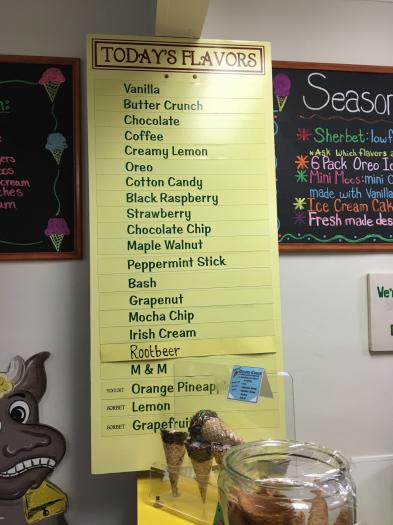 TODAY'S FLAVORS
Vanilla
Butter Crunch
Chocolate
Coffee
Creamy Lemon
Oreo
Cotton Candy
Black Raspberry
Strawberry
Chocolate Chip
Maple Walnut
Peppermint Stick
Bash
Grapenut
Mocha Chip
Irish Cream
Rootbeer
M & M
YOGURT Orange Pineap
SORBET Lemon
SORBET Grapefrui
Season
Sherbet: lowf
*Ask which flavors a
6 Pack Oreo Ic
Mini Mocs: mini c
made with Vanilla
Ice Cream Cak
Fresh made des
We'r